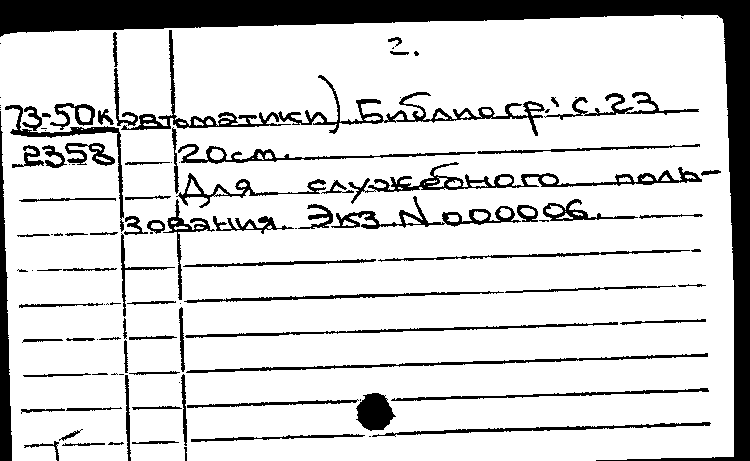 2.
73-50к автоматики) Библиогр.: с. 23
2358 20см.
Для служебного поль-
зования. Экз. N 000006.